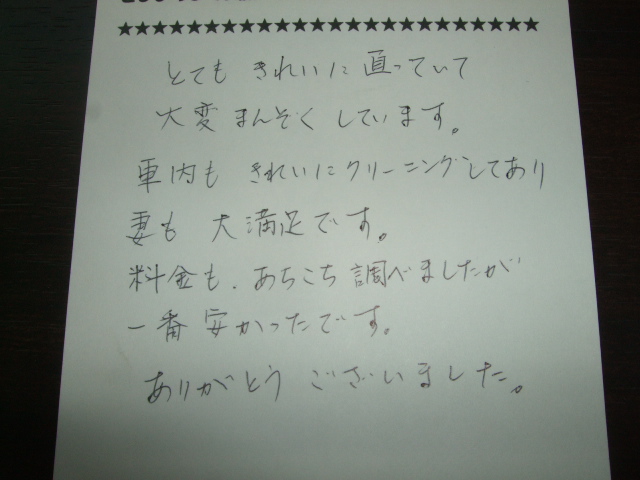 ★★★★★★★★★★★★★★★★★★★★★★★★★★
とても きれいに 直っていて
大変 まんぞく しています。
車内も きれいに クリーニングしてあり
妻も 大満足です。
料金も、あちこち 調べましたが
一番 安かったです。
ありがとう ございました。